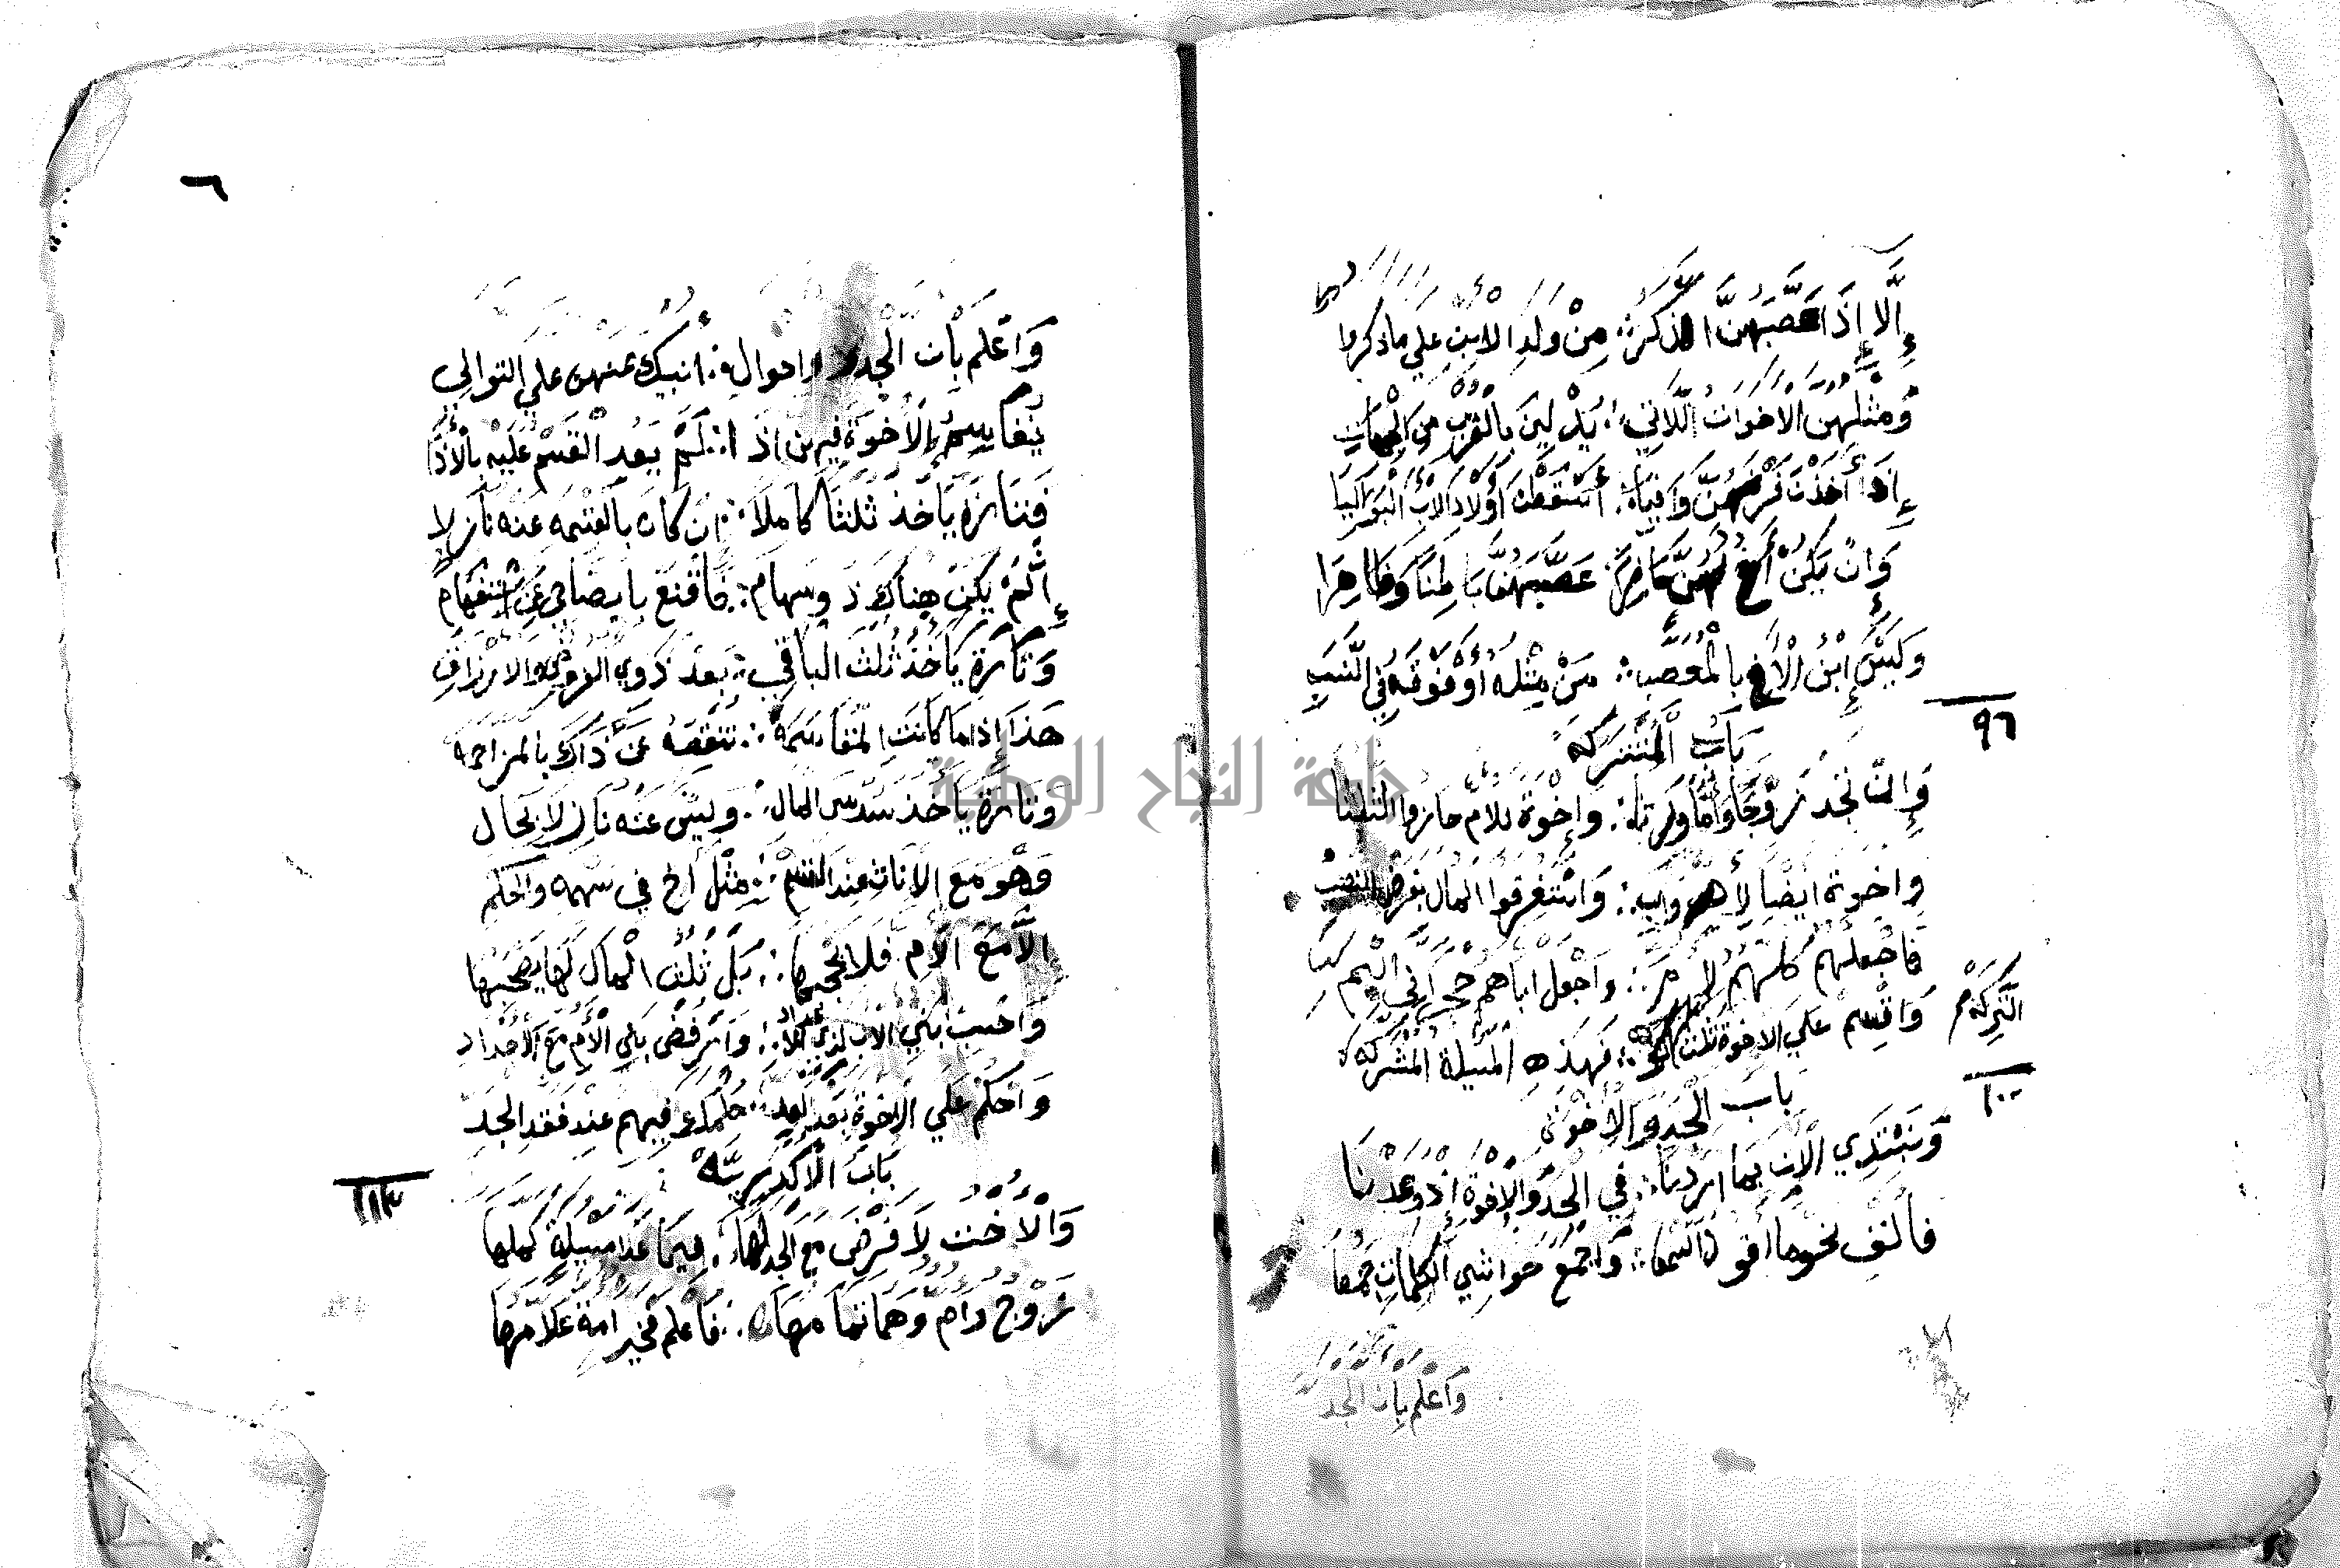 إِلَّا إِذَا عَصَّبَهُنَّ الذكرُ ∴ مِنْ ولدِ الابنِ علي ما ذكروا
وَمثْلهنّ الأخوات اللَّاتي ∴ يُدْلينَ بالقُرْبِ من الجهاتِ
إِذا أخذْنَ فَرْضَهُنَّ وَافِيَا ∴ أسْقَطْنَ أوْلَادَ الأبِ البَوَاكيَا
وَإِنْ يَكُنْ أَخٌ لهنَّ حَاضِرَا ∴ عَصَّبَهُنَّ بَاطِنًا وَظَاهِرَا
وَلَيْسَ إبْنُ الْأَخِ بالْمُعَصِّبِ ∴ مَنْ مِثْلهُ أوْ فَوْقَهُ في النَّسَبِ
٩٦
بَابُ الْمُشَرَّكَه
وَإِنْ تَجْد زَوْجًا وَأُمًّا وَرِثَا ∴ وَإخْوَة للأم حازوا الثلثا
وإخوة ايضًا لأم وأب ∴ وَاسْتَغْرقوا المال بفرض النصب
فَاجْعَلْهُم كلهُم لأم ∴ واجْعل اباهم حجرًا في اليم
وَاقْسِمْ عَلَى الاخوة ثلث التركه ∴ فهذه المسيلة المشركه
التَّرِكَهْ م
١٠٠
باب الْجَد وَالْإخْوَة
وَنَبْتَدِي الْآن بما اردنا ∴ في الجدّ والإخوة إذ وعدنا
فالقِ نحوما أقول السمعا ∴ وَاجْمَعْ حَوَاشِي الكلمات جمعا
وَاعْلم بأن الجد
٦
وَاعْلَم بأن الْجد ذو احوال ∴ أنبيك عنهن علي التوالي
يُقَاسِمُ الْأخْوَة فيهن اذا ∴ لَمْ يَعُد القَسْم عَلَيْهِ بالْأذَا
فَتَارَةً يَأخُذ ثُلثًا كَامِلَا ∴ إن كان بالقسمه عنه نازلا
إِنْ لَمْ يَكُنْ هُنَاك ذو سِهَام ∴ فَاقْنَعْ بايضاحي عَن اسْتفهام
وَتَارَة يَأخُذ ثُلث الباقي ∴ بَعْدَ ذَوي الفروض والارزاق
هَذَا إِذا مَا كَانَت المُقَاسَمَهْ ∴ تنقصهُ عَنْ ذَاك بالمزاحمه
وتارة يَأخُذ سُدس المال ∴ وَلَيْسَ عَنْهُ نازلا بحال
وَهْوَ مَعَ الْإناث عند القَسْم ∴ مِثْل أخ في سهمه والحكم
إلَّا مَعَ الأم فَلَا يحجبها ∴ بَلْ ثُلُث المال لَهَا يصحبها
وَاحْسب بَني الاب لدي الأعداد ∴ وَارْفُض بَني الْأُم مَعَ الْأَجْدَاد
وَاحْكُم عَلَى الإخْوَة بَعْد العد ∴ حُكْمك فيهم عند فَقْد الجد
بَابُ الْأكْدَرِيَّهْ
١١٣
وَالْأُخْت لَا فَرْض مع الجد لَهَا ∴ فِيمَا عَدَا مَسيلةٍ كَمَّلها
زَوْج وَأم وَهُمَا تَمَامهَا ∴ فَاعْلم فخير امة علّامهَا